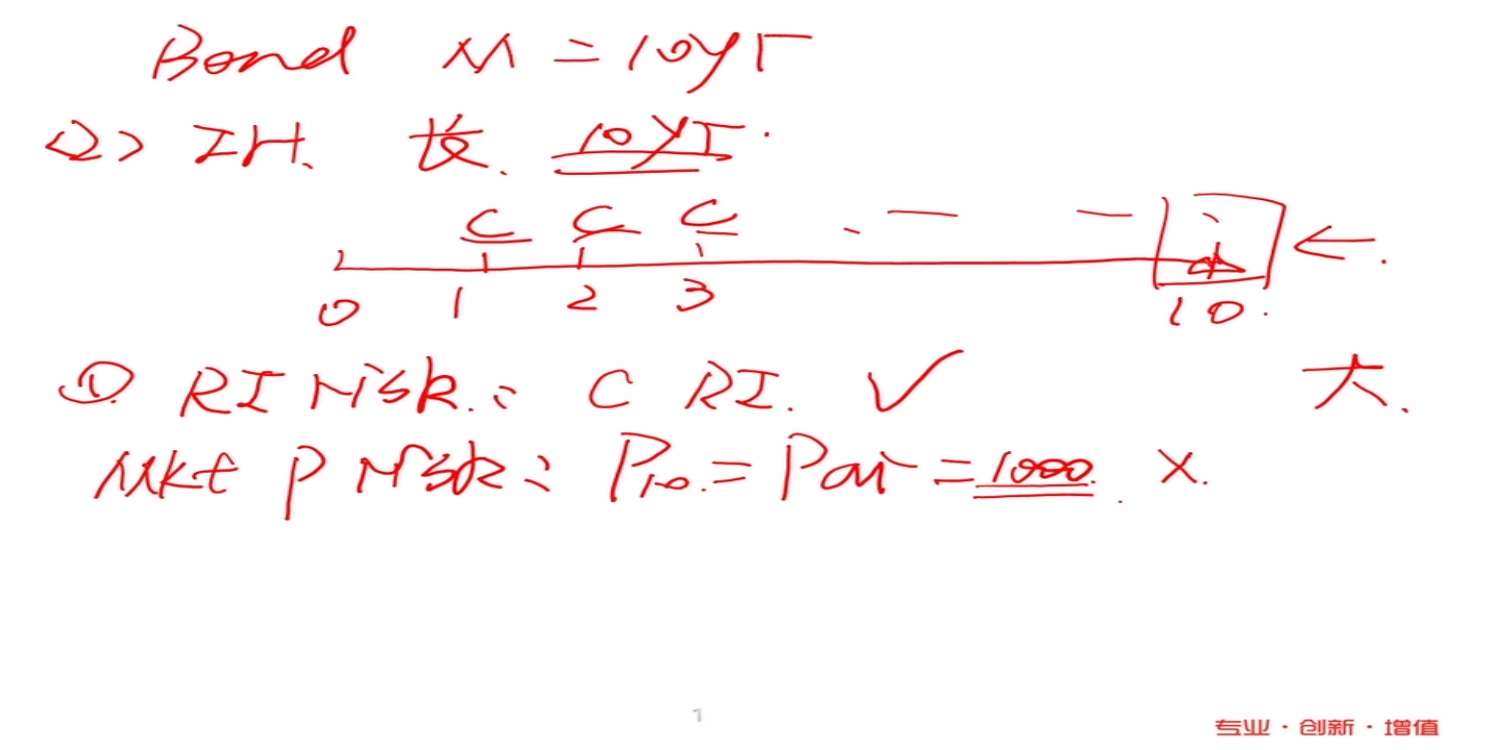 Bond M = 10yr
<2> IH. 长. 10yr.
C C C . — —
0 1 2 3 10.
①. RI risk.: C RI. ✓ 大.
Mkt P risk: P10. = Par = 1000. ×.
1
专业·创新·增值